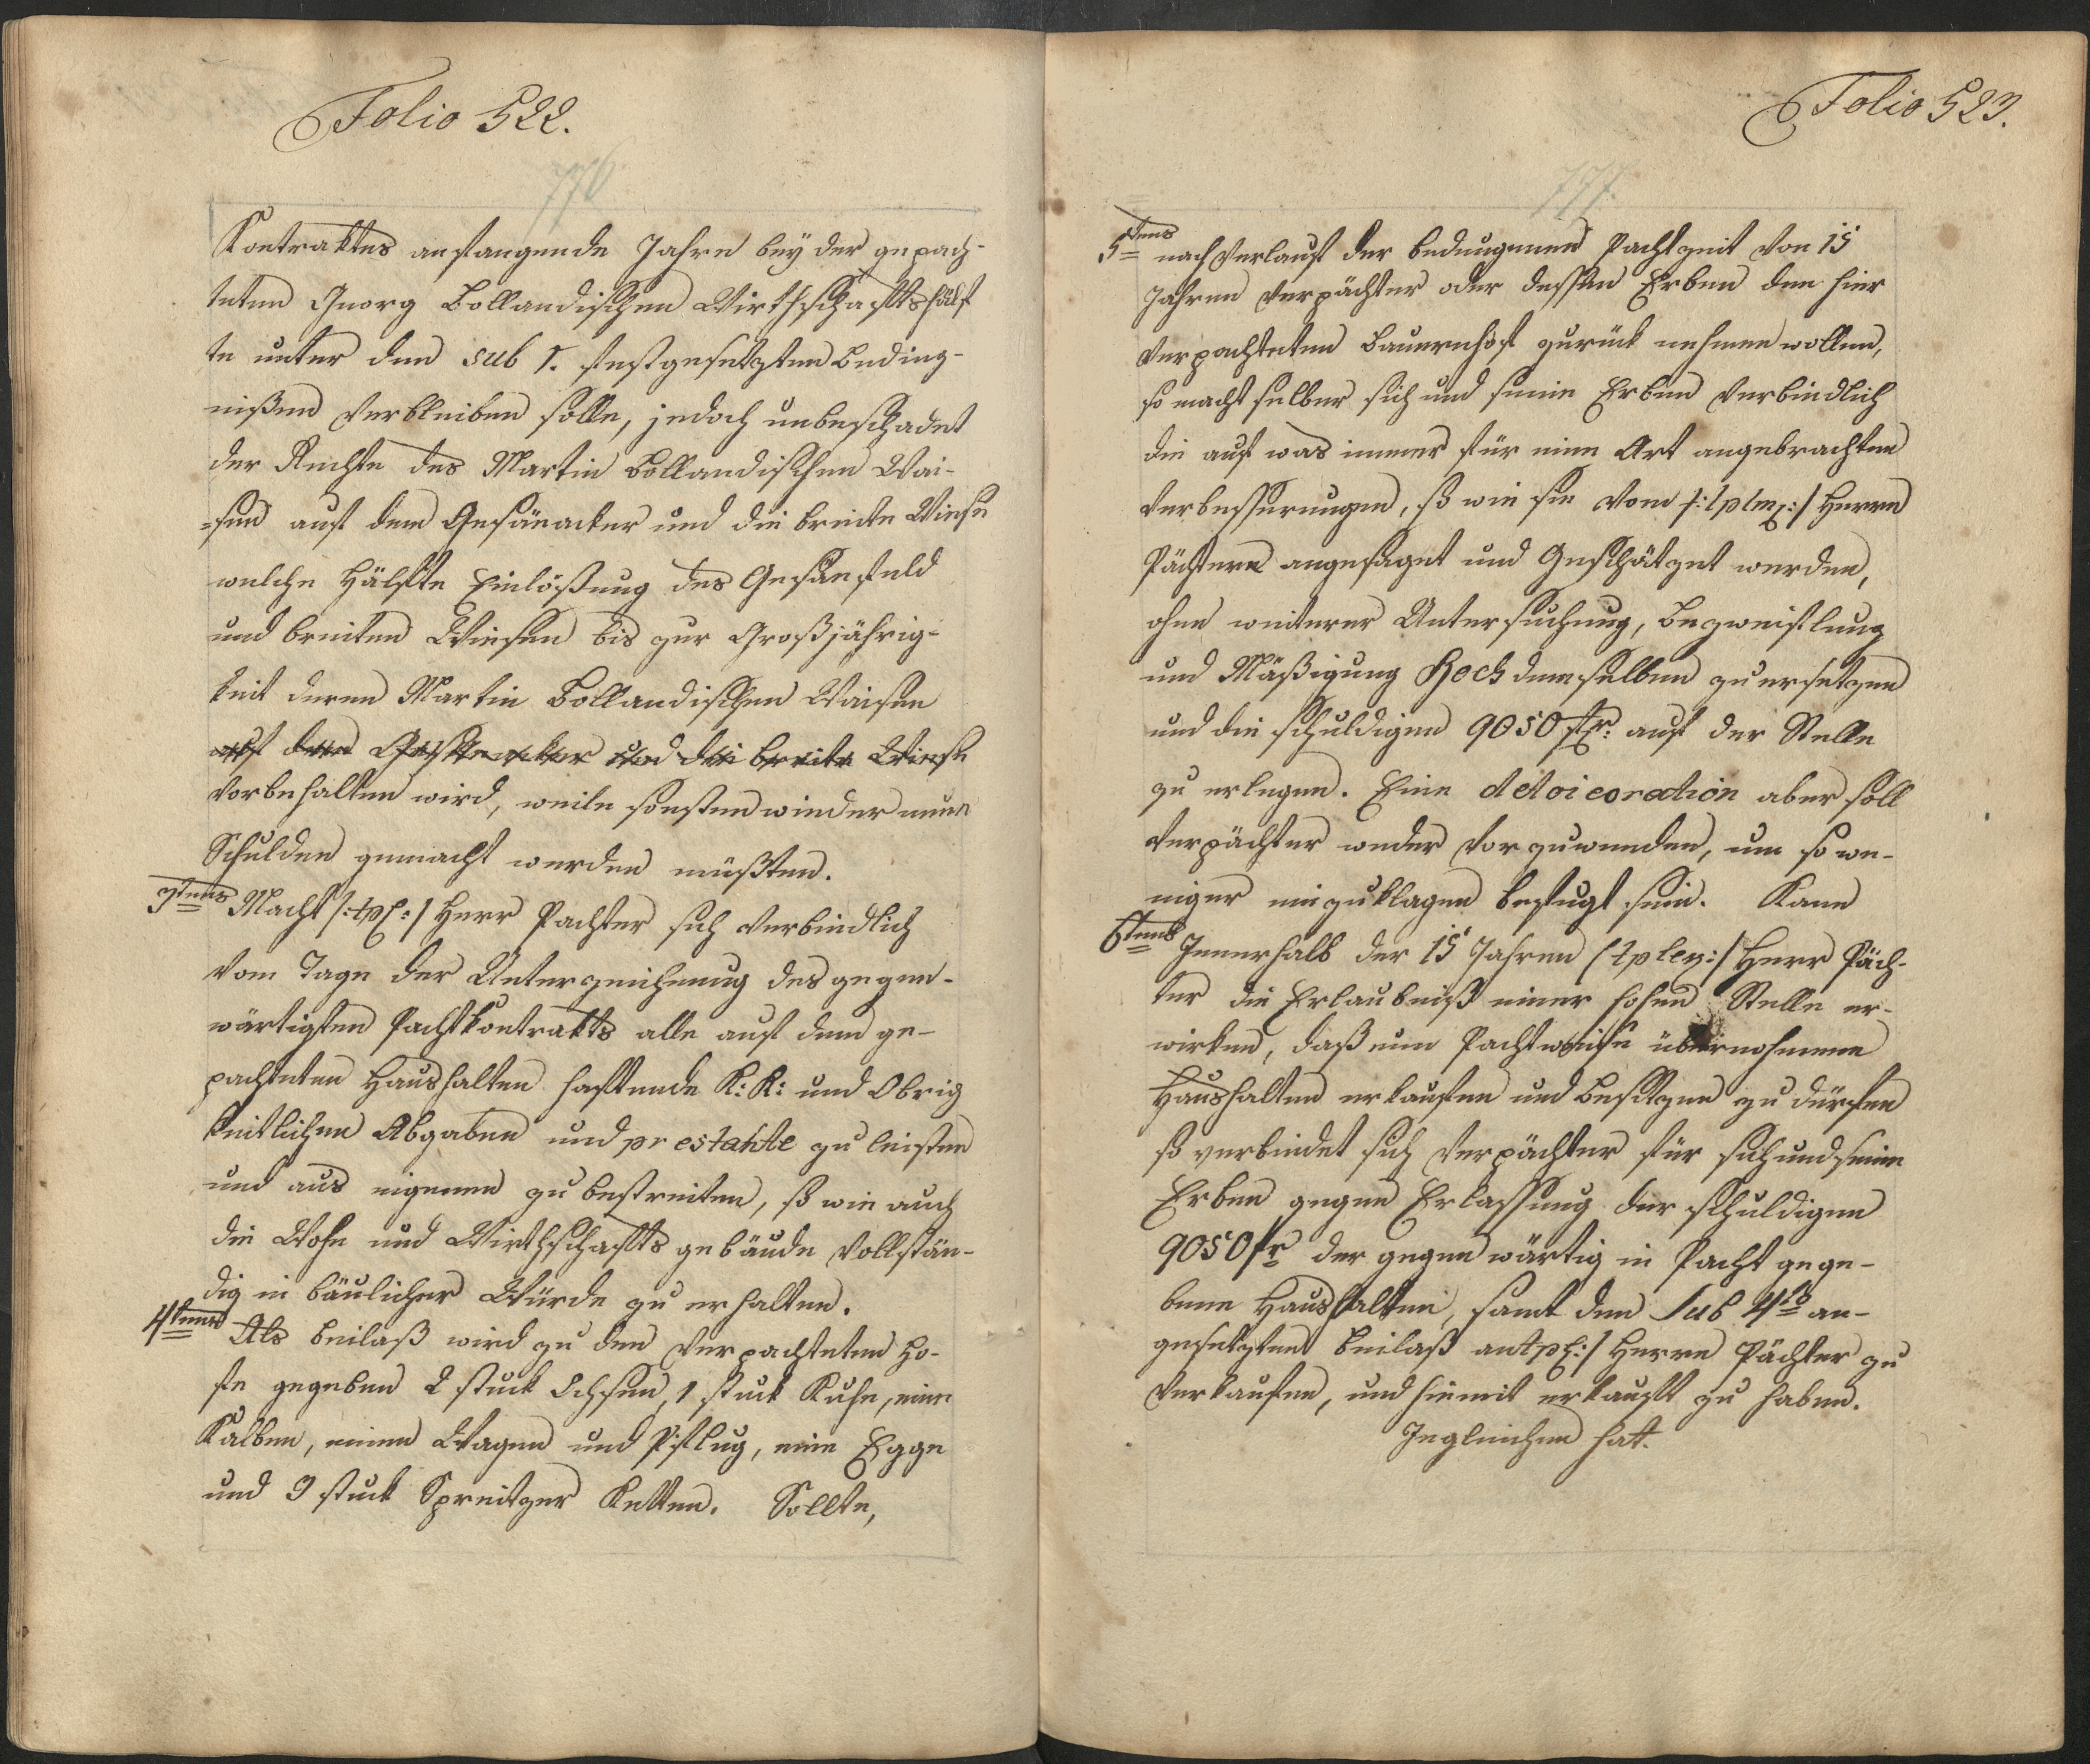 Folio 522.
776
Kontraktes anfangende Jahre bey der gepach-
teten Georg Bollandischen Wirthschaftshälf
te unter den sub 1. festgesetzten Beding-
nißen Verbleiben solle, jedoch unbeschadet
der Rechte des Martin Bollandischen Wai-
=sen auf dem Gesänacker und die breite Wiese
welche Hälfte Einlößung des Gesänfeld
und breiten Wiesen bis zur Großjährig-
keit deren Martin Bollandischen Waisen
auf dem und die breite Wiese
Vorbehalten wird, weile sonsten wieder neue
Schulden gemacht werden müßten.
3tens Macht /: :/ Herr Pachter sich Verbindlich
Vom Tage der Unterzeichnung des gegen-
wärtigten Pachtkontrakts alle auf dem ge-
pachteten Haushalten haftende K: K: und Obrig
keitlichen Abgaben und prestahte zu leisten
und aus eigenen zu bestreiten, so wie auch
die Wohn und Wirthschafts gebäude Vollstän-
dig in bäulicher Würde zu erhalten.
4tens Als Beilaß wird zu den Verpachteten Ho-
fe gegeben 2 stuck Ochsen, 1 stuck Kuhe, eine
Kalben, einen Wagen und Pflug, eine Egge
und 3 stuck Spreitzer Ketten. Sollte,
Folio 523.
777.
5tens nach Verlauf der bedungenen Pachtzeit Von 15
Jahren Verpächter oder dessen Erben den hier
Verpachteten Bauernhof zurück nehmen wollen,
so macht selber sich und seine Erben Verbindlich
die auf was immer für eine Art angebrachten
Verbesserungen, so wie sie Vom /: :/ Herrn
Pächtern angesaget und Geschätzet werden,
ohne weiterer Untersuchung, Bezweiflung
und Mäßigung Hoch demselben zu ersetzen
und die schuldigen 9050 fr: auf der Stelle
zu erlegen. Eine detoicoration aber soll
Verpächter weder Vorzuwenden, um so we-
niger einzuklagen befugt sein. Kann
6tens Innerhalb der 15 Jahren /: :/ Herr Päch-
ter die Erlaubniß einer hohen Stelle er-
wirken, daß eine Pachtweise übernohmene
Haushalten erkaufen und besitzen zu dürfen
so verbindet sich Verpächter für sich und seine
Erben gegen Erlassung der schuldigen
9050 fr der gegenwärtig in Pacht gege-
bene Haushalten, samt den Sub 4to an-
gesetzten Beilaß an :/ Herrn Pächter zu
Verkaufen, und hiemit erkauft zu haben.
Ingleichen hat.